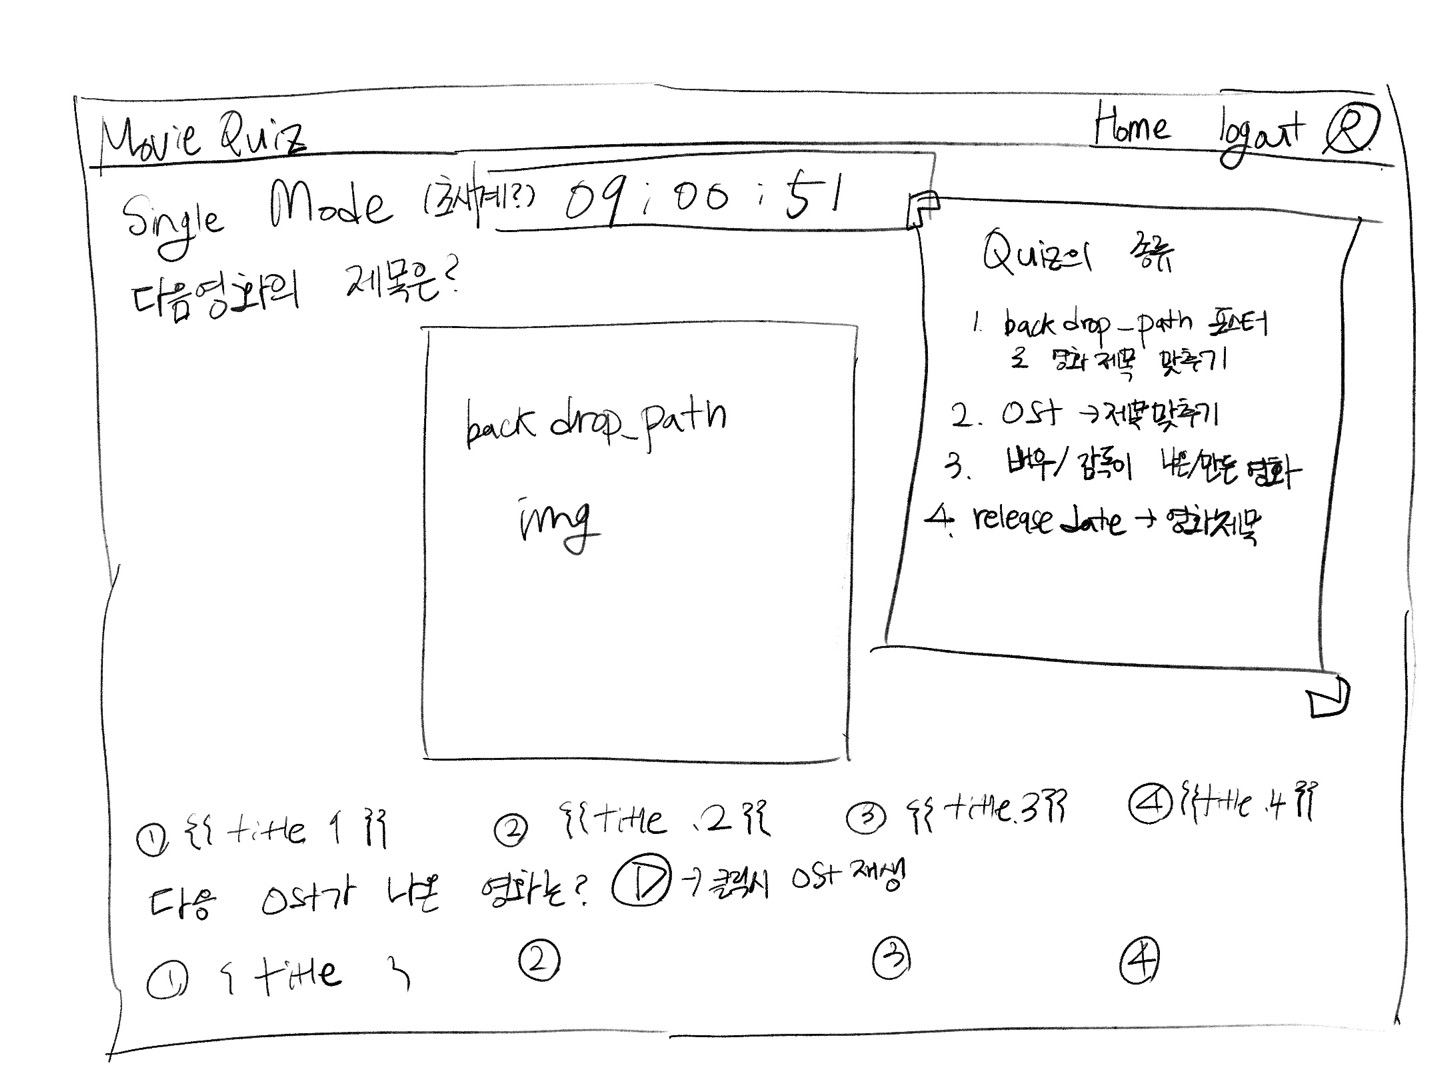 Movie Quiz
Home logout
Single Mode (초시계?) 09 : 00 : 51
다음영화의 제목은?
back drop_path
img
Quiz의 종류
1. back drop_path 포스터
로 영화 제목 맞추기
2. OST → 제목 맞추기
3. 배우/감독이 나온/만든 영화
4. release date → 영화제목
① {{ title 1 }} ② {{ title .2 }} ③ {{ title.3 }} ④ {{ title .4 }}
다음 OST가 나온 영화는? → 클릭시 OST 재생
① { title } ② ③ ④